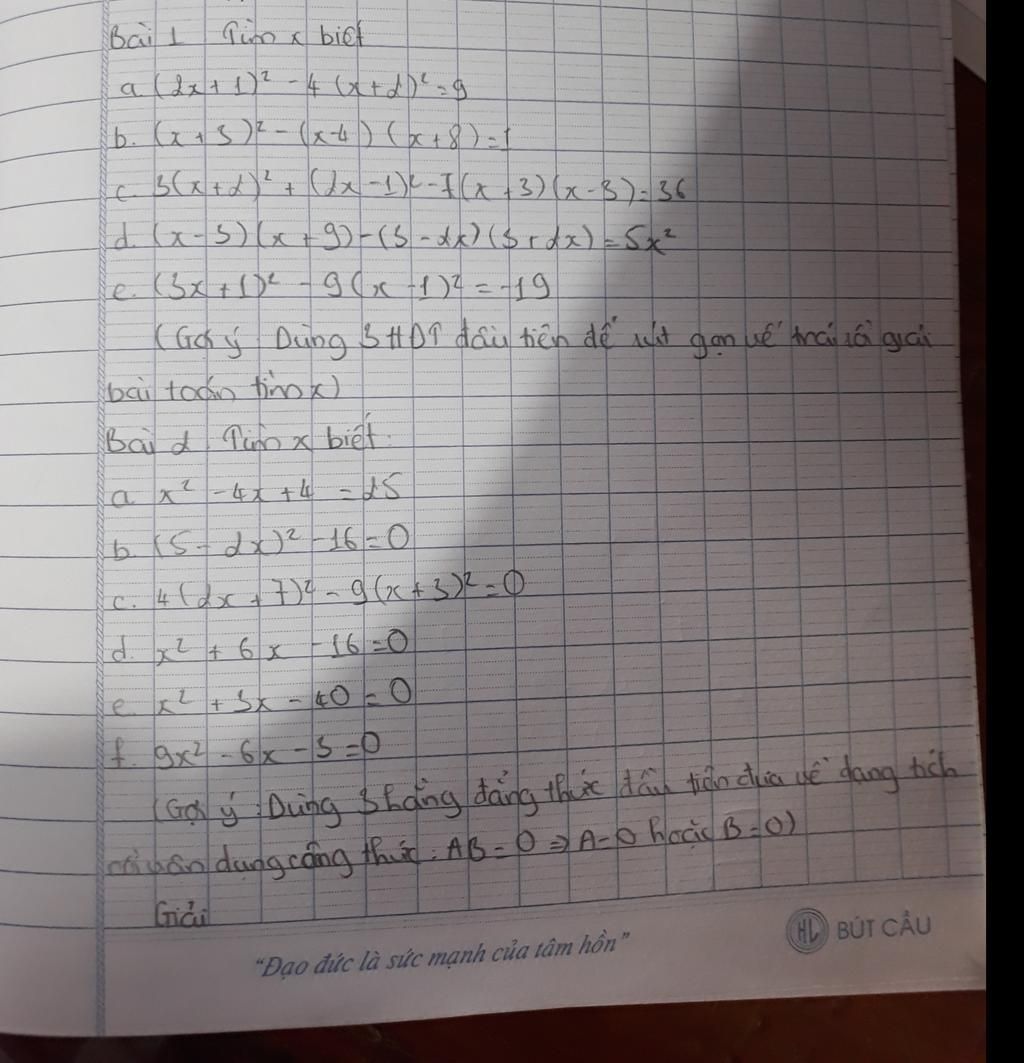 Bài 1 Tìm x biết
a (2x+1)² - 4(x+2)² = 9
b. (x+3)² - (x-4)(x+8) = 1
c 3(x+2)² + (2x-1)² - 7(x+3)(x-3) = 36
d. (x-3)(x+9) - (3-2x)(3+2x) = 5x²
e. (3x+1)² - 9(x-1)² = -19
(Gợi ý Dùng 3 HĐT đầu tiên để rút gọn vế trái rồi giải
bài toán tìm x)
Bài 2. Tìm x biết.
a x² - 4x + 4 = 25
b (5-2x)² - 16 = 0
c. 4(2x+7)² - 9(x+3)² = 0
d. x² + 6x - 16 = 0
e x² + 3x - 40 = 0
f. 9x² - 6x - 3 = 0
(Gợi ý: Dùng 3 hằng đẳng thức đầu tiên đưa về dạng tích
rồi vận dụng công thức: AB = 0 ⇒ A = 0 hoặc B = 0)
Giải
"Đạo đức là sức mạnh của tâm hồn" HL BÚT CẦU